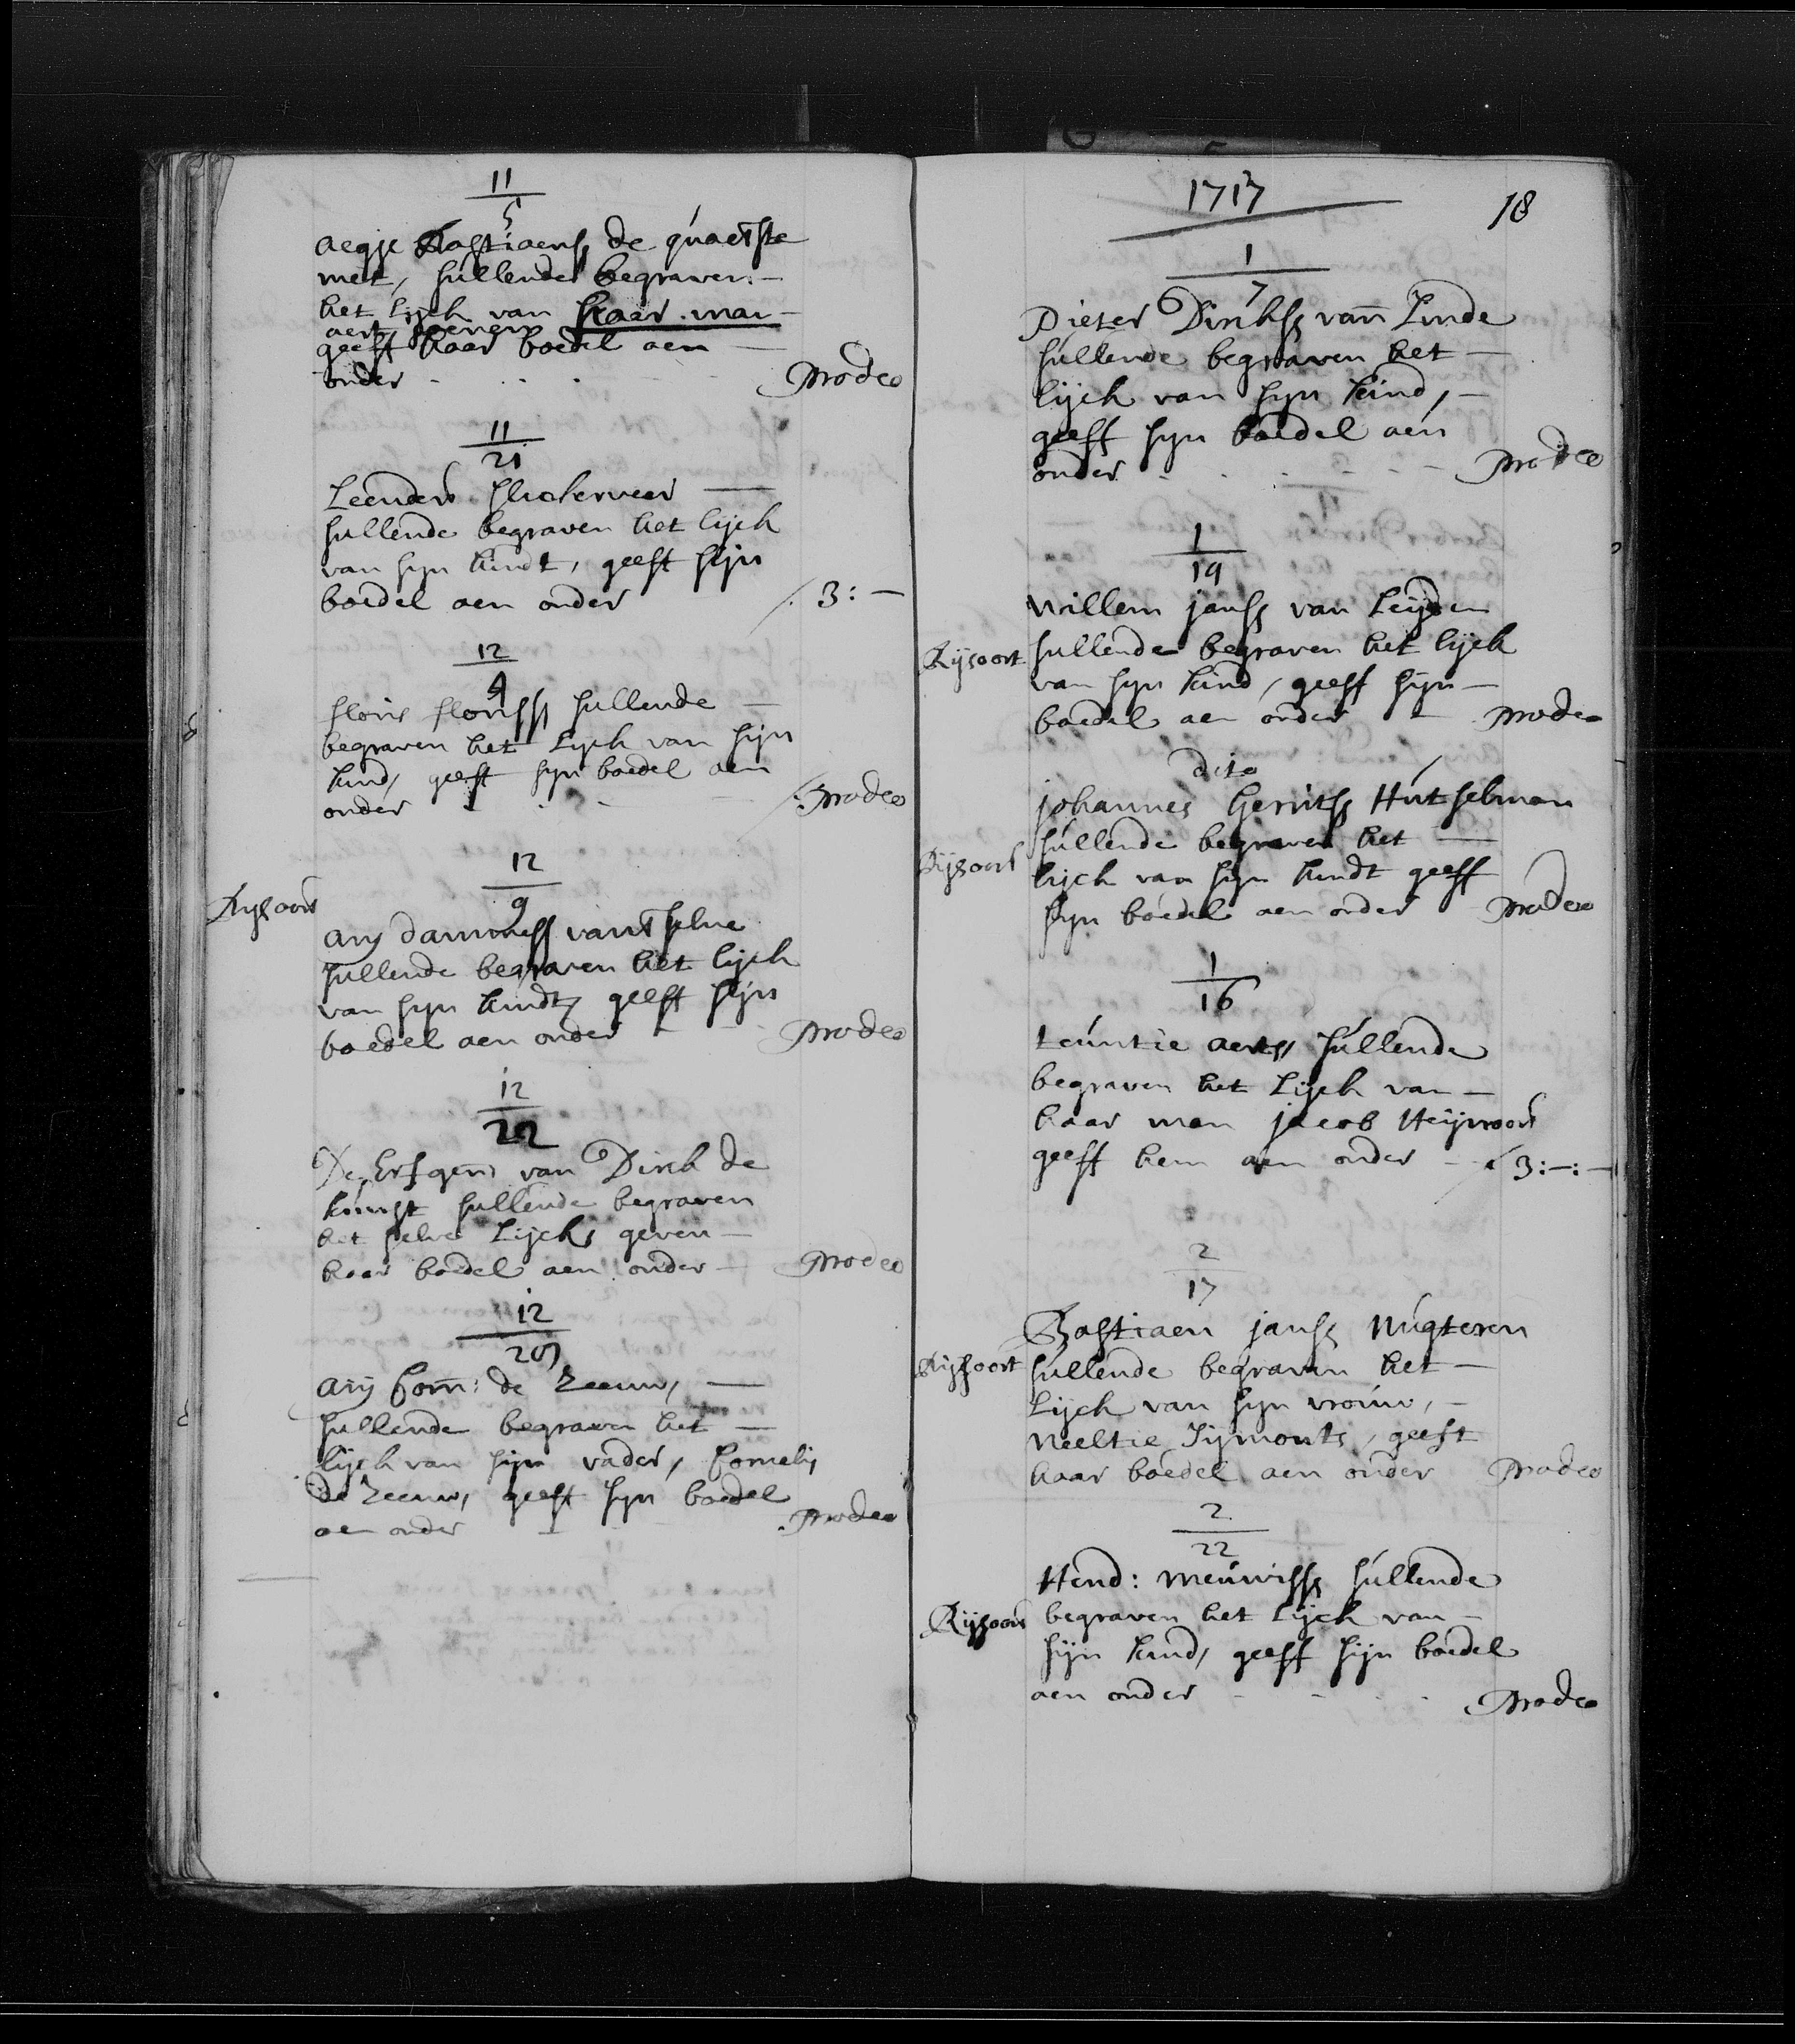 11
5
aegje Bastiaenss de quaetste
met, sullende begraven
het lijck van haar man
aert
geeft haar boedel aen
onder prodeo
11
21
Leendert
sullende begraven het lijck
van syn kindt, geeft sijn
boedel aen onder 3:-
12
4
floris florisss sullende
begraven het Lyck van sijn
kind, geeft syn boedel aen
onder prodeo
12
9
Rysoort
arij dammess vant selve
sullende begraven het lijck
van syn kindt, geeft sijn
boedel aen onder prodeo
12
22
De Erfgen: van Dirck de
sullende begraven
het selve Lijck, geven
haar boedel aen onder prodeo
12
arij Corn: de Zeeuw,
sullende begraven het
lijck van sijn vader, Cornelis
de Zeeuw, geeft syn boedel
aen onder prodeo
1717
18
1
7
Pieter Dirckss van
sullende begraven het
lijck van syn kind,
geeff syn boedel aen
onder prodeo
1
19
Willem janss van Leijden
Rijsoort sullende begraven het lijck
van syn kind, geeff sijn
boedel aen onder prodeo
dito
johannes Gerritss Hutselman
Rijsoort sullende begraven het
lijck van syn kindt geeff
syn boedel aen onder prodeo
1
16
teuntie aertss sullende
begraven het Lijck van
haar man jacob
geeff hem aen onder 3:-:-
2
17
Bastiaen janss Nugteren
Rijsoort sullende begraven het
Lijck van syn vrouw,
Neeltie Sijmonts, geeft
haar boedel aen onder prodeo
2
22
Hend: meuwisss sullende
Rijsoort begraven het Lijck van
sijn kind, geeff sijn boedel
aen onder prodeo